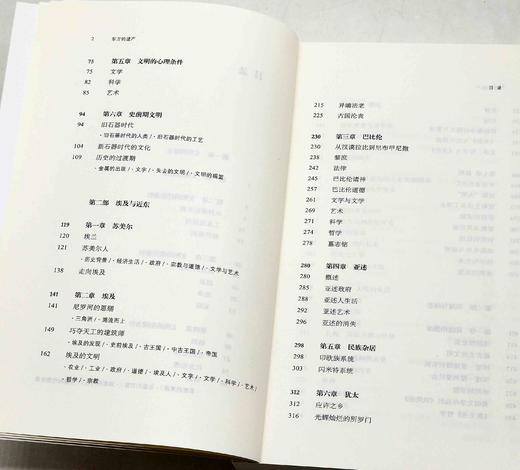 2 东方的遗产
75 第五章 文明的心理条件
75 文学
82 科学
85 艺术
94 第六章 史前期文明
94 旧石器时代
·旧石器时代的人类/·旧石器时代的工艺
104 新石器时代的文化
109 历史的过渡期
·金属的出现/·文字/·失去的文明/·文明的摇篮
第二部 埃及与近东
119 第一章 苏美尔
120 埃兰
121 苏美尔人
·历史背景/·经济生活/·政府/·宗教与道德/·文学与艺术
138 走向埃及
141 第二章 埃及
141 尼罗河的恩赐
·三角洲/·溯流而上
149 巧夺天工的建筑师
·埃及的发现/·史前埃及/·古王国/·中古王国/·帝国
162 埃及的文明
·农业/·工业/·政府/·道德/·埃及人/·文字/·文学/·科学/·艺术/
·哲学/·宗教
目录
215 异端法老
225 古国沦丧
230 第三章 巴比伦
230 从汉谟拉比到尼布甲尼撒
238 黎庶
242 法律
245 巴比伦诸神
257 巴比伦道德
261 文字与文学
269 艺术
271 科学
274 哲学
278 墓志铭
280 第四章 亚述
280 概述
285 亚述政府
290 亚述人生活
292 亚述艺术
296 亚述的消失
298 第五章 民族杂居
298 印欧族系统
303 闪米特系统
312 第六章 犹太
312 应许之乡
316 光辉灿烂的所罗门